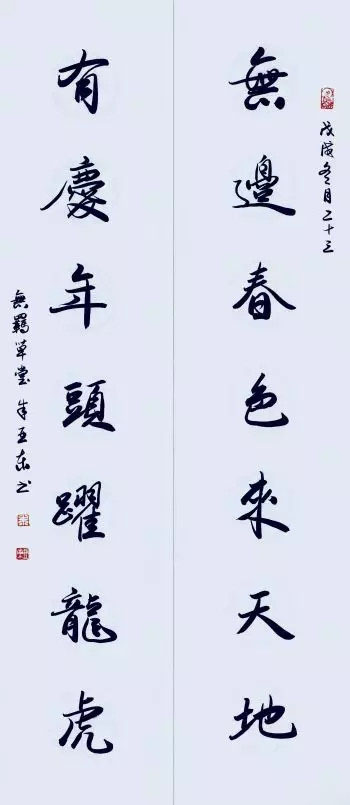 戊戌冬月二十三
無邊春色來天地
有慶年頭躍龍虎
無羈草堂 朱东书